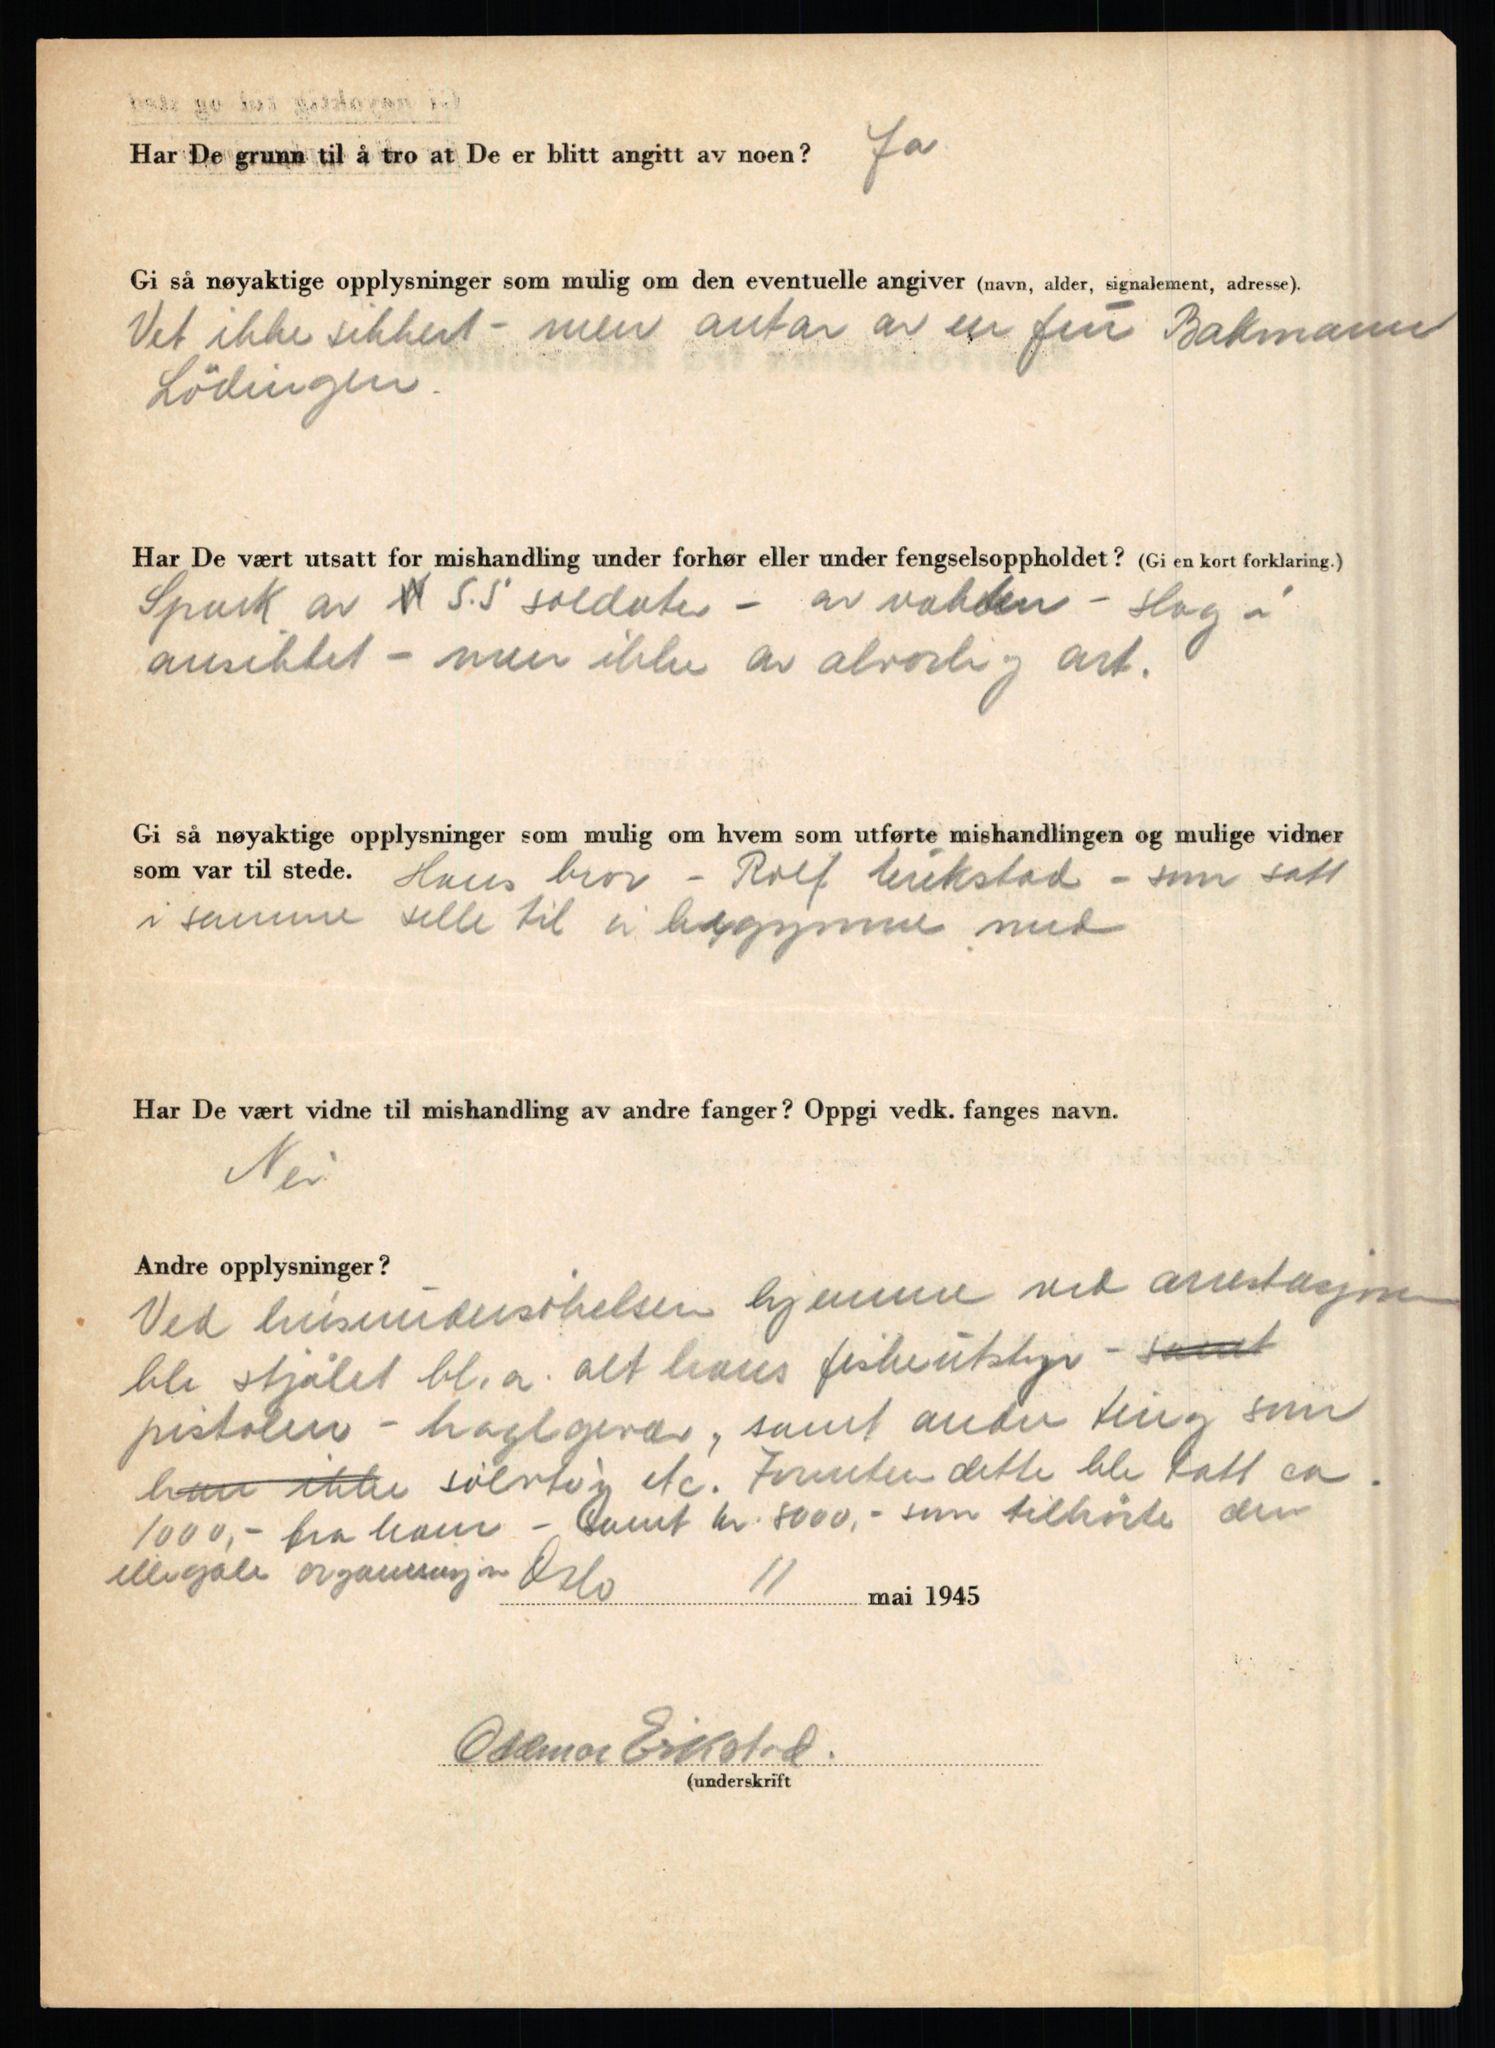 Har De grunn til å tro at De er blitt angitt av noen? Ja
Gi så nøyaktige opplysninger som mulig om den eventuelle angiver (navn, alder, signalement, adresse).
Vet ikke sikkert - men antar av en frü Bakmann
Lödingen.
Har De vært utsatt for mishandling under forhør eller under fengselsoppholdet? (Gi en kort forklaring.)
Spark av S.S soldater - av vakten - slag i
ansiktet - men ikke av alvorlig art.
Gi så nøyaktige opplysninger som mulig om hvem som utførte mishandlingen og mulige vidner
som var til stede. Hans bror - Rolf Erikstad - som satt
i samme selle til å begynne med
Har De vært vidne til mishandling av andre fanger? Oppgi vedk. fanges navn.
Nei
Andre opplysninger?
Ved husundersökelsen hjemme ved arrestasjonen
ble stjålet bl.a. alt hans fiskeutstyr - samt
pistolen - haglgevær, samt andre ting som
han ikke sölvtöy etc. Foruten dette ble tatt ca.
1000,- fra ham - Samt kr. 8000,- som tilhörte den
illegale organisasjon Oslo 11 mai 1945
Erikstad.
(underskrift